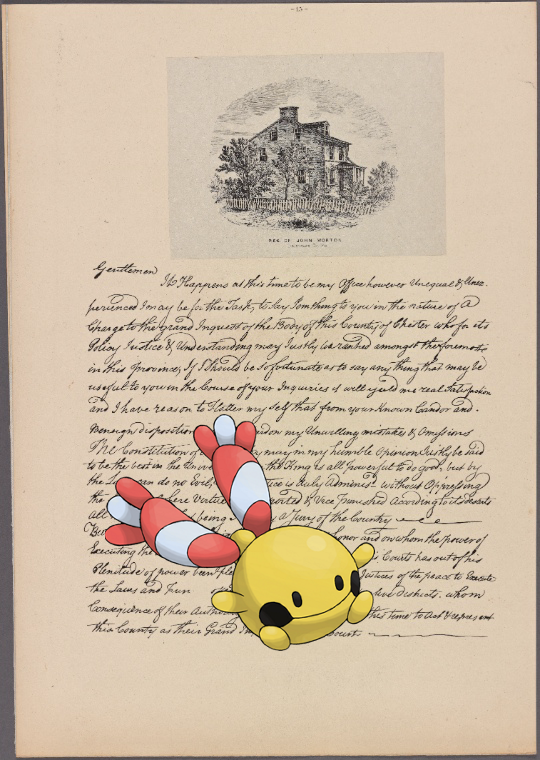 - 15 -
RES. OF JOHN MORTON
Gentlemen
It Happens at this time to be my Office however Unequal & Unex-
perienced I may be for the Task, to Say Somthing to you in the nature of a
Charge to the grand Inquest of the Body of this County of Chester who for its
Policy Justice & Understanding may Justly be ranked amongst the foremost
in this Province, If I Should be So fortunate as to say any thing that may be
useful to you in the Course of your Inquiries it will yield me real Satisfaction
and I have reason to Flatter my Self that from your known Candor and
Benign disposition my Unwilling mistakes & Omissions
The Constitution of may in my humble Opinion Justly be said
to be the best in the the King is all powerful to do good, but by
the can do no tice is duly Administ.d without Oppressing
the where Virtue & Vice Punished According to its deserts
all being by a Jury of the Country
But honor and on whom the power of
Executing the Courts has out of his
Plenitude of power been Justices of the peace to Execute
the Laws and Districts, whom
Consequence of their this time to Act & represent
this County as their Grand